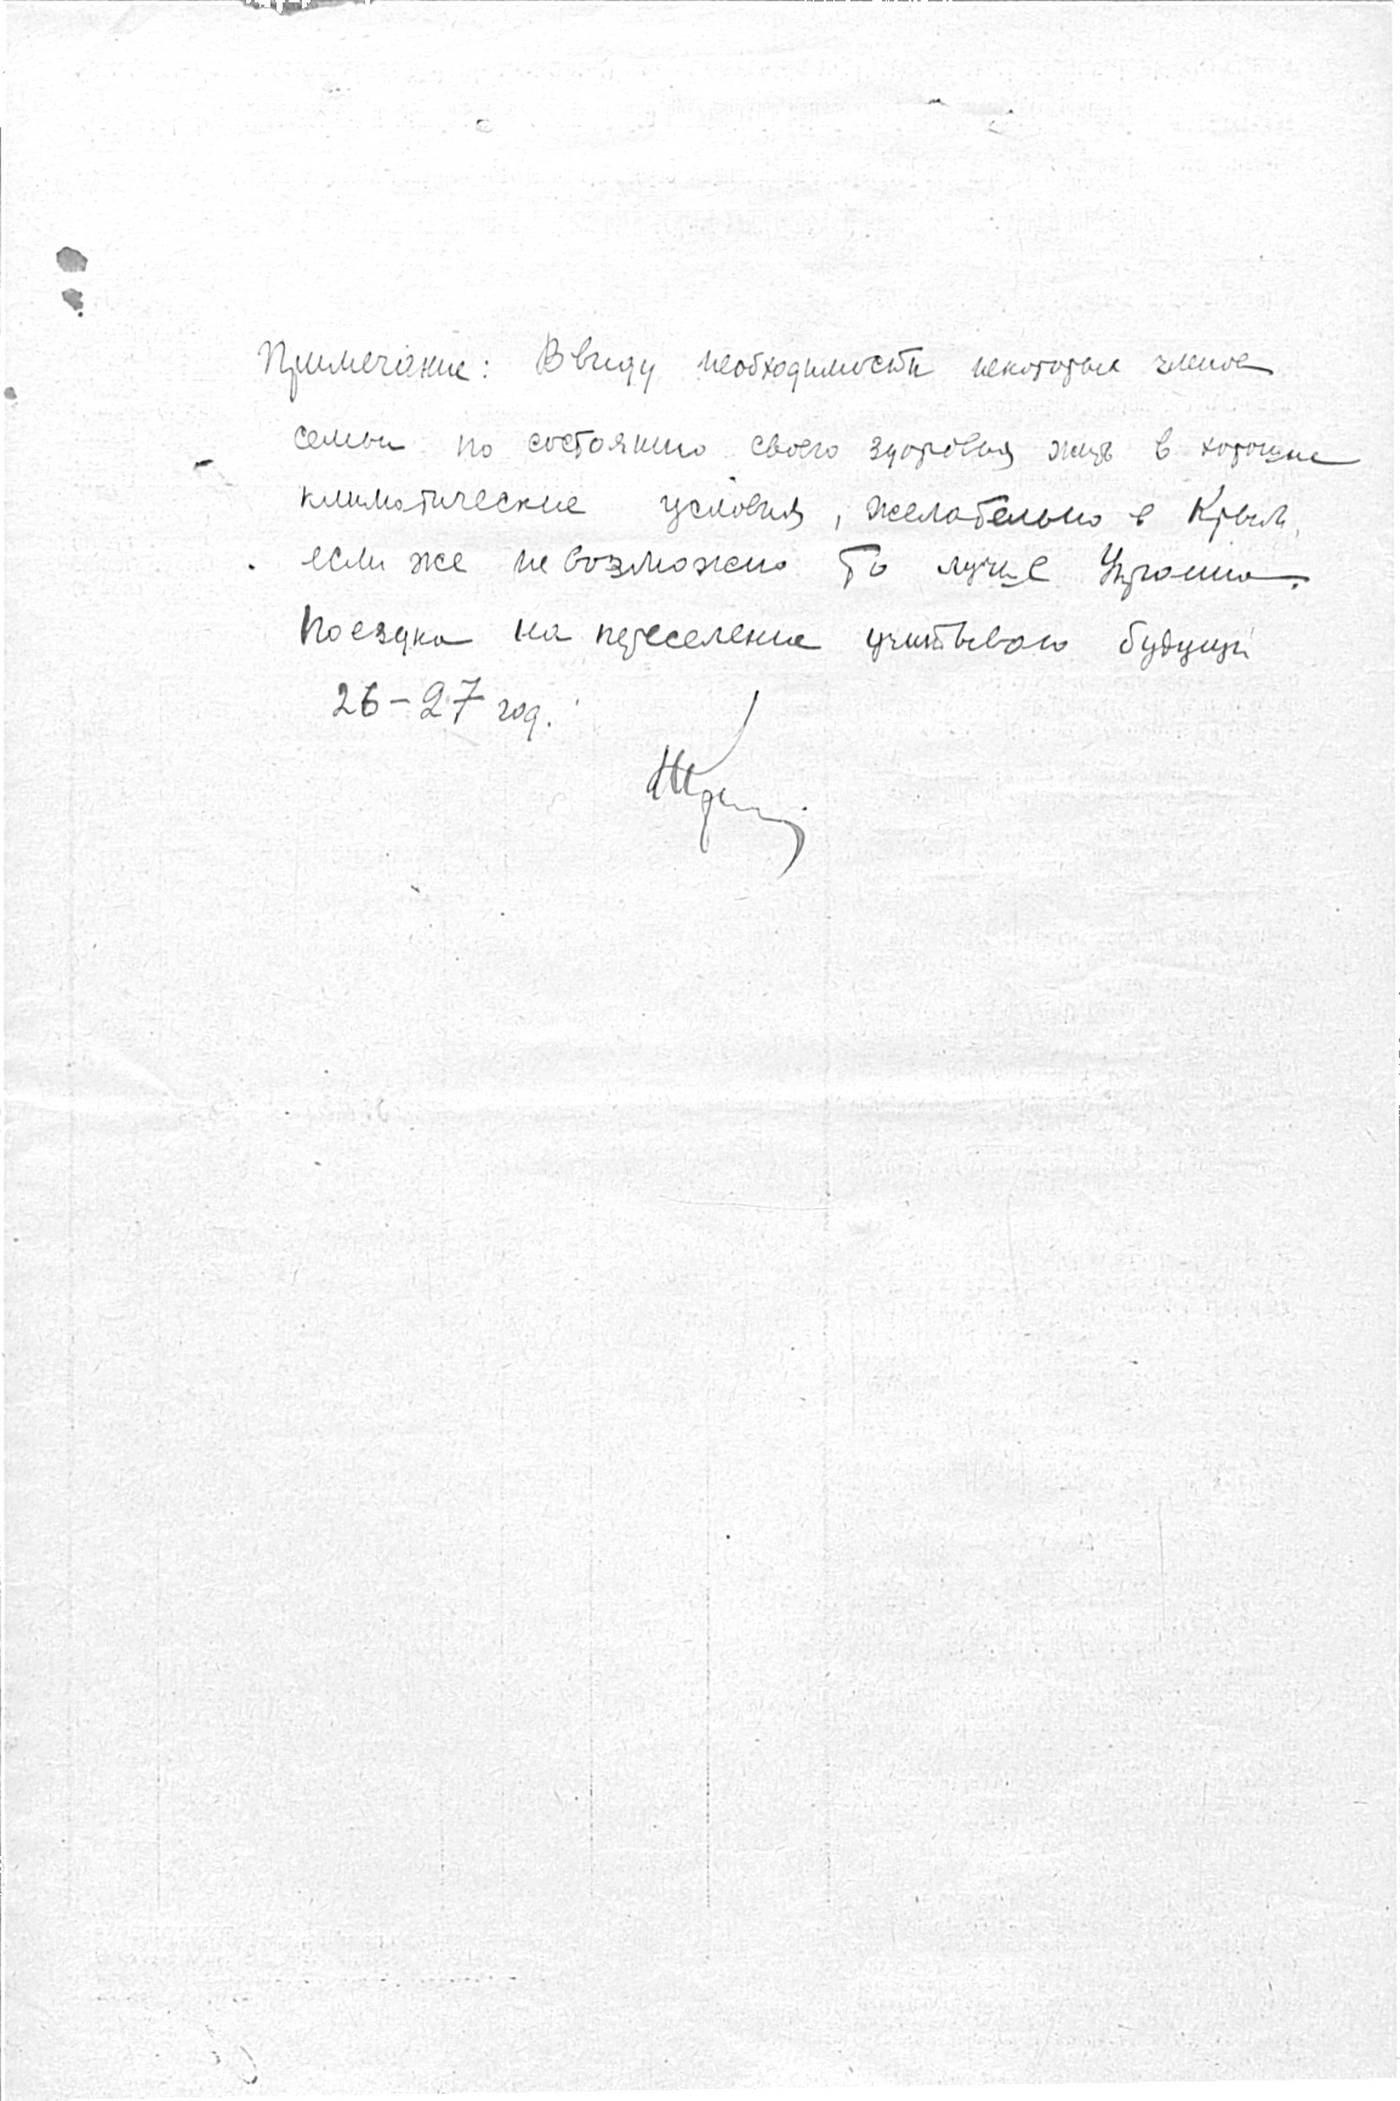 Примечание: Ввиду необходимости некоторых членов
семьи по состоянию своего здоровья жить в хорошие
климатические условия, желательно в Крым,
если же невозможно то лучше Украина.
Поездка на переселение учитываю будущий
26-27 год.